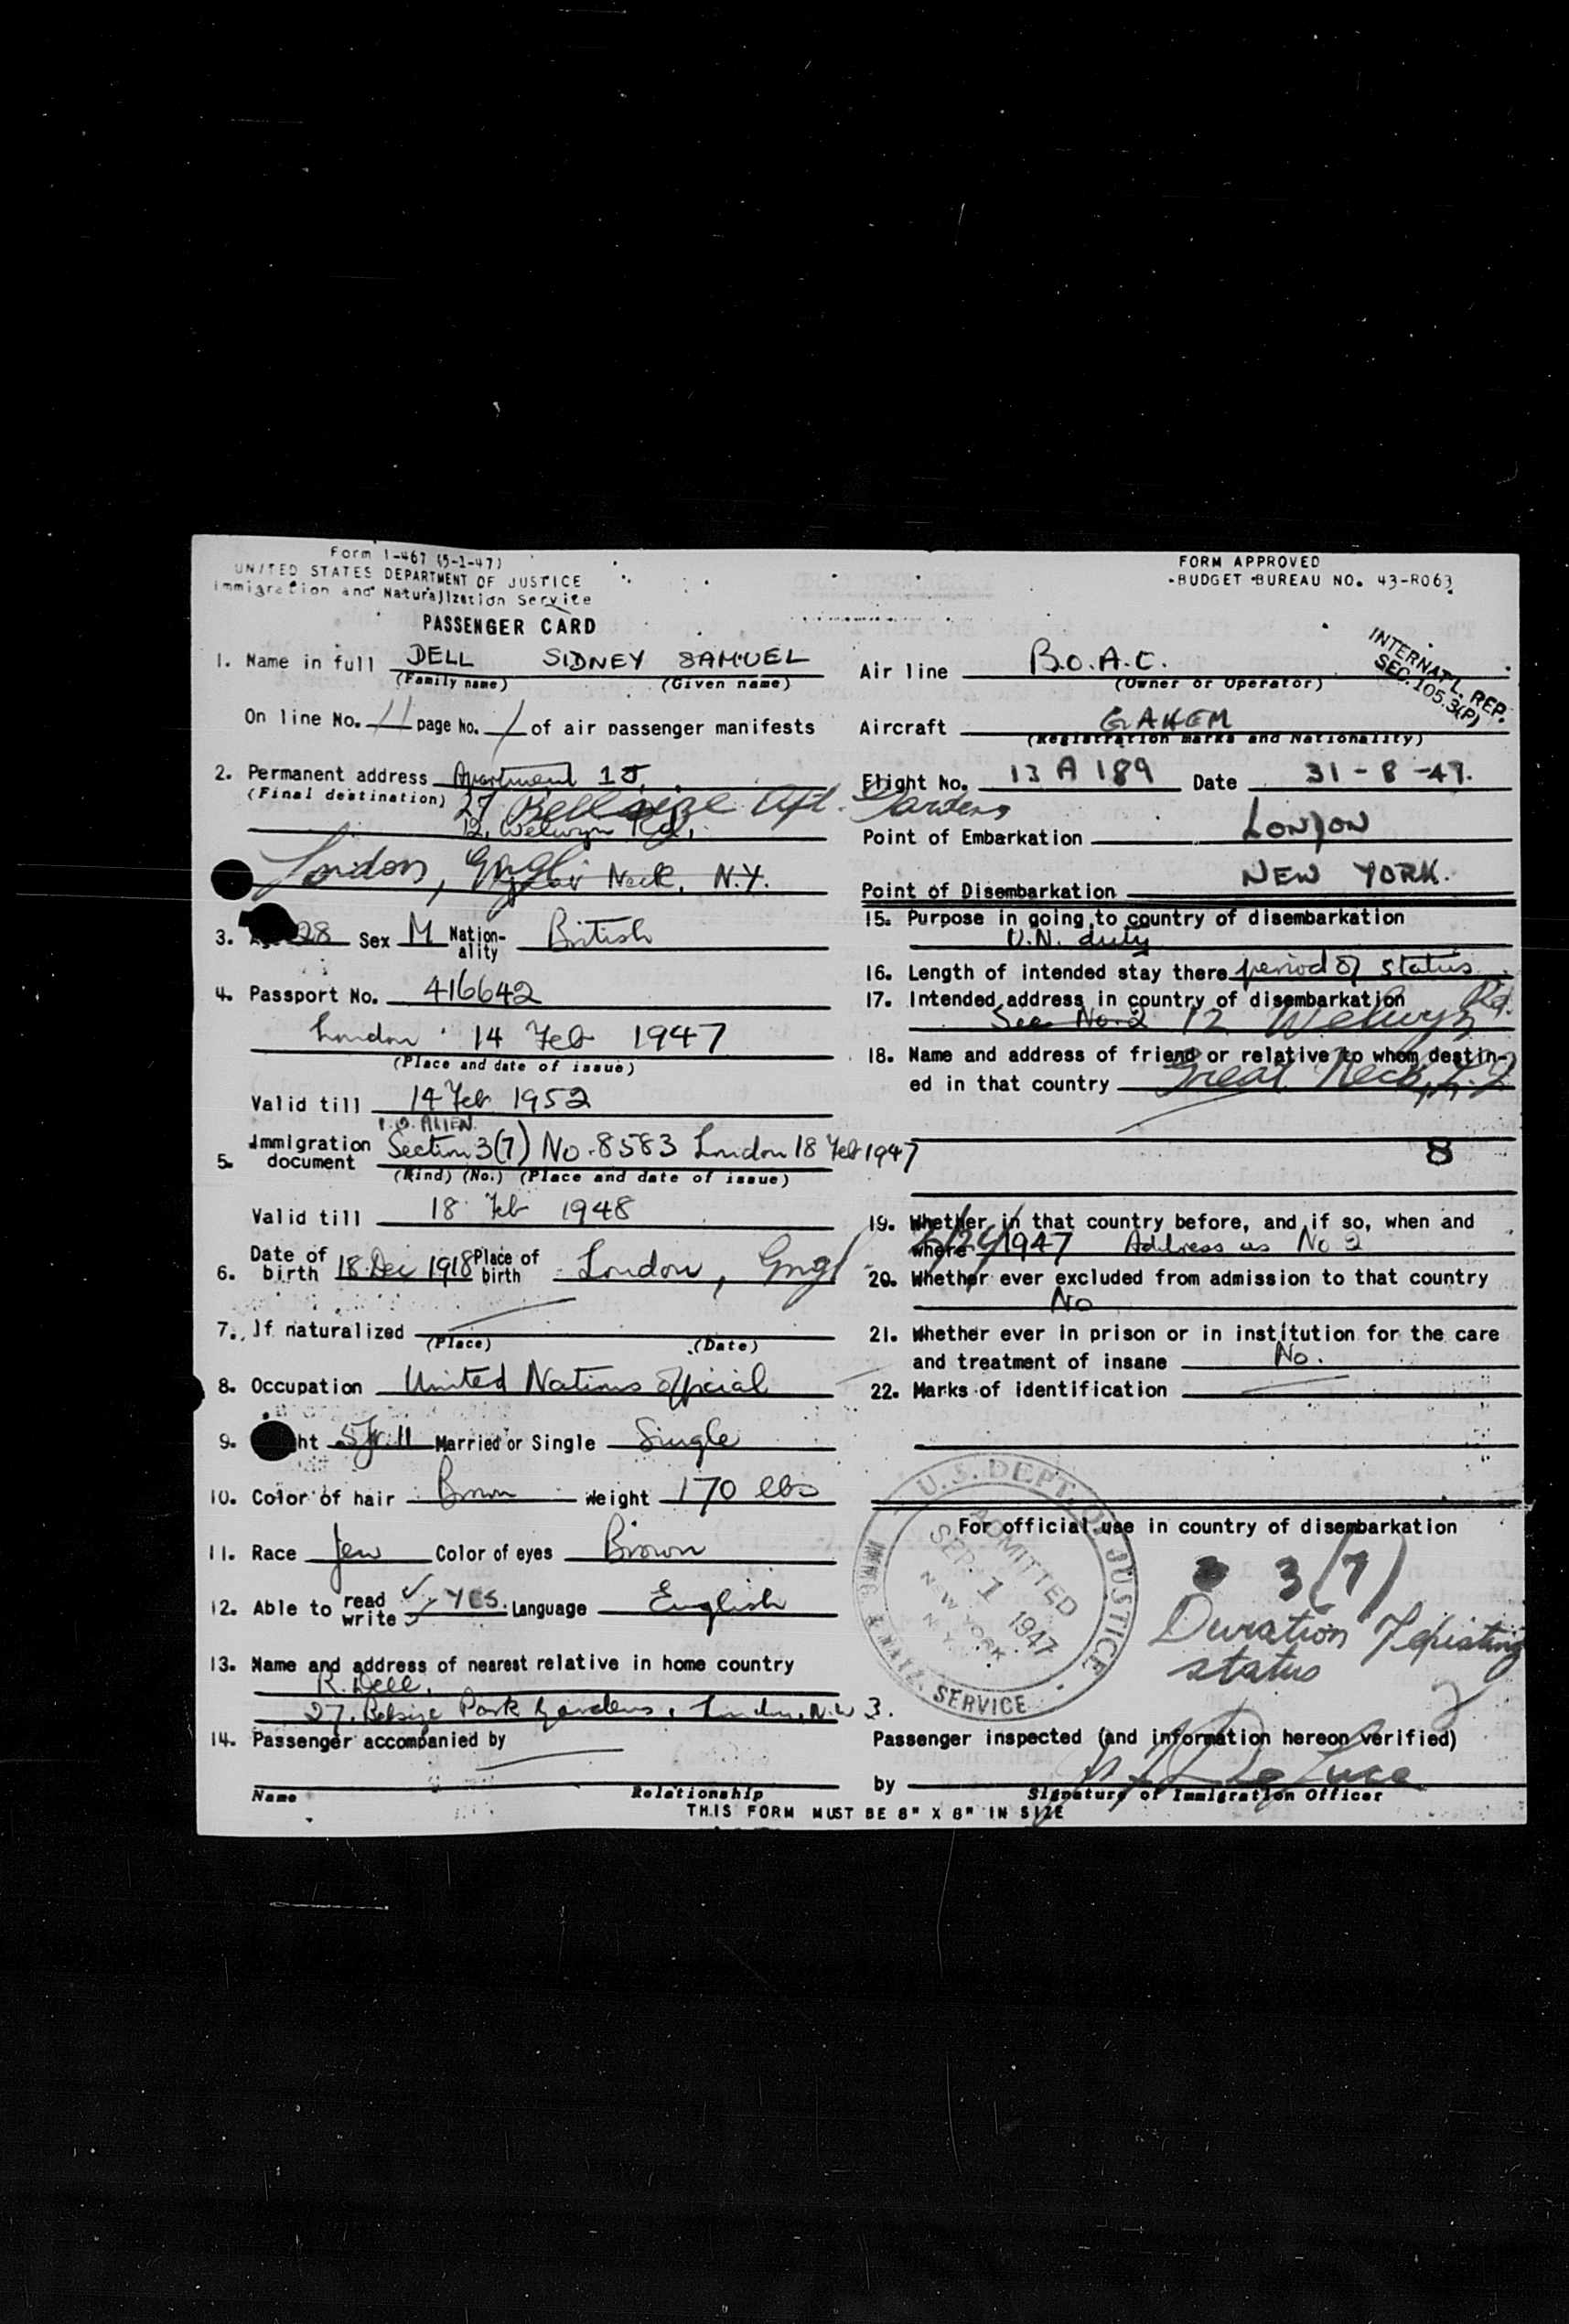 Form I-467 (5-1-47)
UNITED STATES DEPARTMENT OF JUSTICE
Immigration and Naturalization Service
PASSENGER CARD
FORM APPROVED
BUDGET BUREAU NO. 43-R063
INTERNAT'L. REP.
SEC. 105.3(P)
1. Name in full DELL SIDNEY SAMUEL
(Family name) (Given name)
On line No. 11 page No. 1 of air passenger manifests
2. Permanent address Apartment 1J,
(Final destination) 27 Apt. Gardens
12, Welwyn Rd,
London, Engl
Great Neck, N.Y.
3. 28 Sex M Nation-ality British
4. Passport No. 416642
London 14 Feb 1947
(Place and date of issue)
Valid till 14 Feb 1952
5. Immigration document Section 3(7) No. 8583 London 18 Feb 1947
(Kind) (No.) (Place and date of issue)
Valid till 18 Feb 1948
6. Date of birth 18 Dec 1918 Place of birth London, Engl
7. If naturalized
(Place) (Date)
8. Occupation United Nations Official
9. ht 5 ft. 11 Married or Single Single
10. Color of hair Brown Weight 170 lbs
11. Race Jew Color of eyes Brown
12. Able to read write YES. Language English
13. Name and address of nearest relative in home country
R. Dell,
27, Belsize Park Gardens, London, N.W 3.
14. Passenger accompanied by
Name Relationship
Air line B.O.A.C.
(Owner or Operator)
Aircraft G AKEM
(Registration marks and Nationality)
Flight No. 13 A 189 Date 31-8-47.
Point of Embarkation LONDON
Point of Disembarkation NEW YORK.
15. Purpose in going to country of disembarkation
U.N. duty
16. Length of intended stay there period of status
17. Intended address in country of disembarkation
See No. 2 12 Welwyn Rd.
18. Name and address of friend or relative to whom destin-
ed in that country Great Neck, L.I.
8
19. Whether in that country before, and if so, when and
where 1947 Address as No 2
20. Whether ever excluded from admission to that country
No
21. Whether ever in prison or in institution for the care
and treatment of insane No.
22. Marks of identification
For official use in country of disembarkation
U.S. DEPT. OF JUSTICE
ADMITTED
SEP. 1 1947
NEW YORK
N.Y.
IMMG. & NATZ. SERVICE
3(7)
Duration of existing
status
2
Passenger inspected (and information hereon verified)
by De Luca
Signature of Immigration Officer
THIS FORM MUST BE 8" X 8" IN SIZE